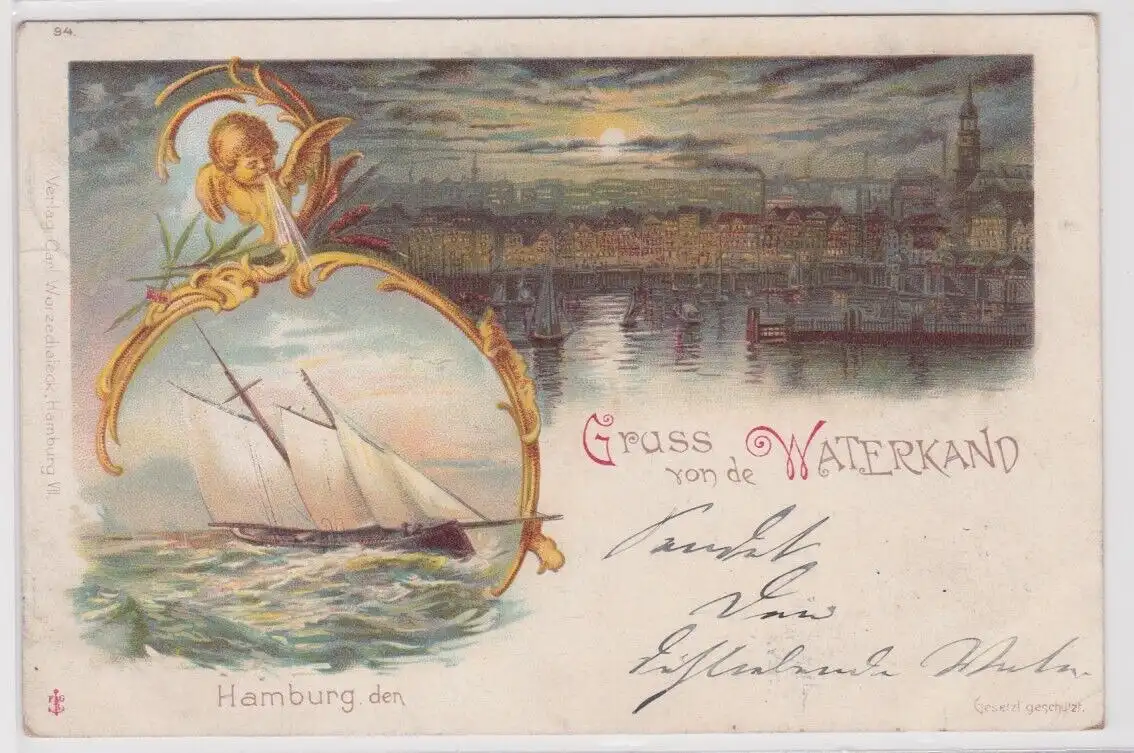 94.
Verlag Carl Worzedialeck, Hamburg VII.
Gruss
von de WATERKAND
Sendet
Dein
Hamburg, den
Gesetzl geschützt.